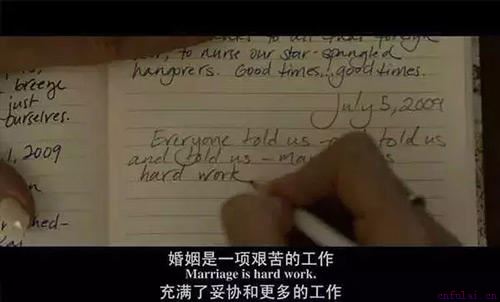 breeze
just
ourselves.
, 2009
to all that foreign
, to nurse our star-spangled
hangovers. Good times...good times.
July 5, 2009
Everyone told us - told us
and told us - ma
hard work
婚姻是一项艰苦的工作
Marriage is hard work.
充满了妥协和更多的工作